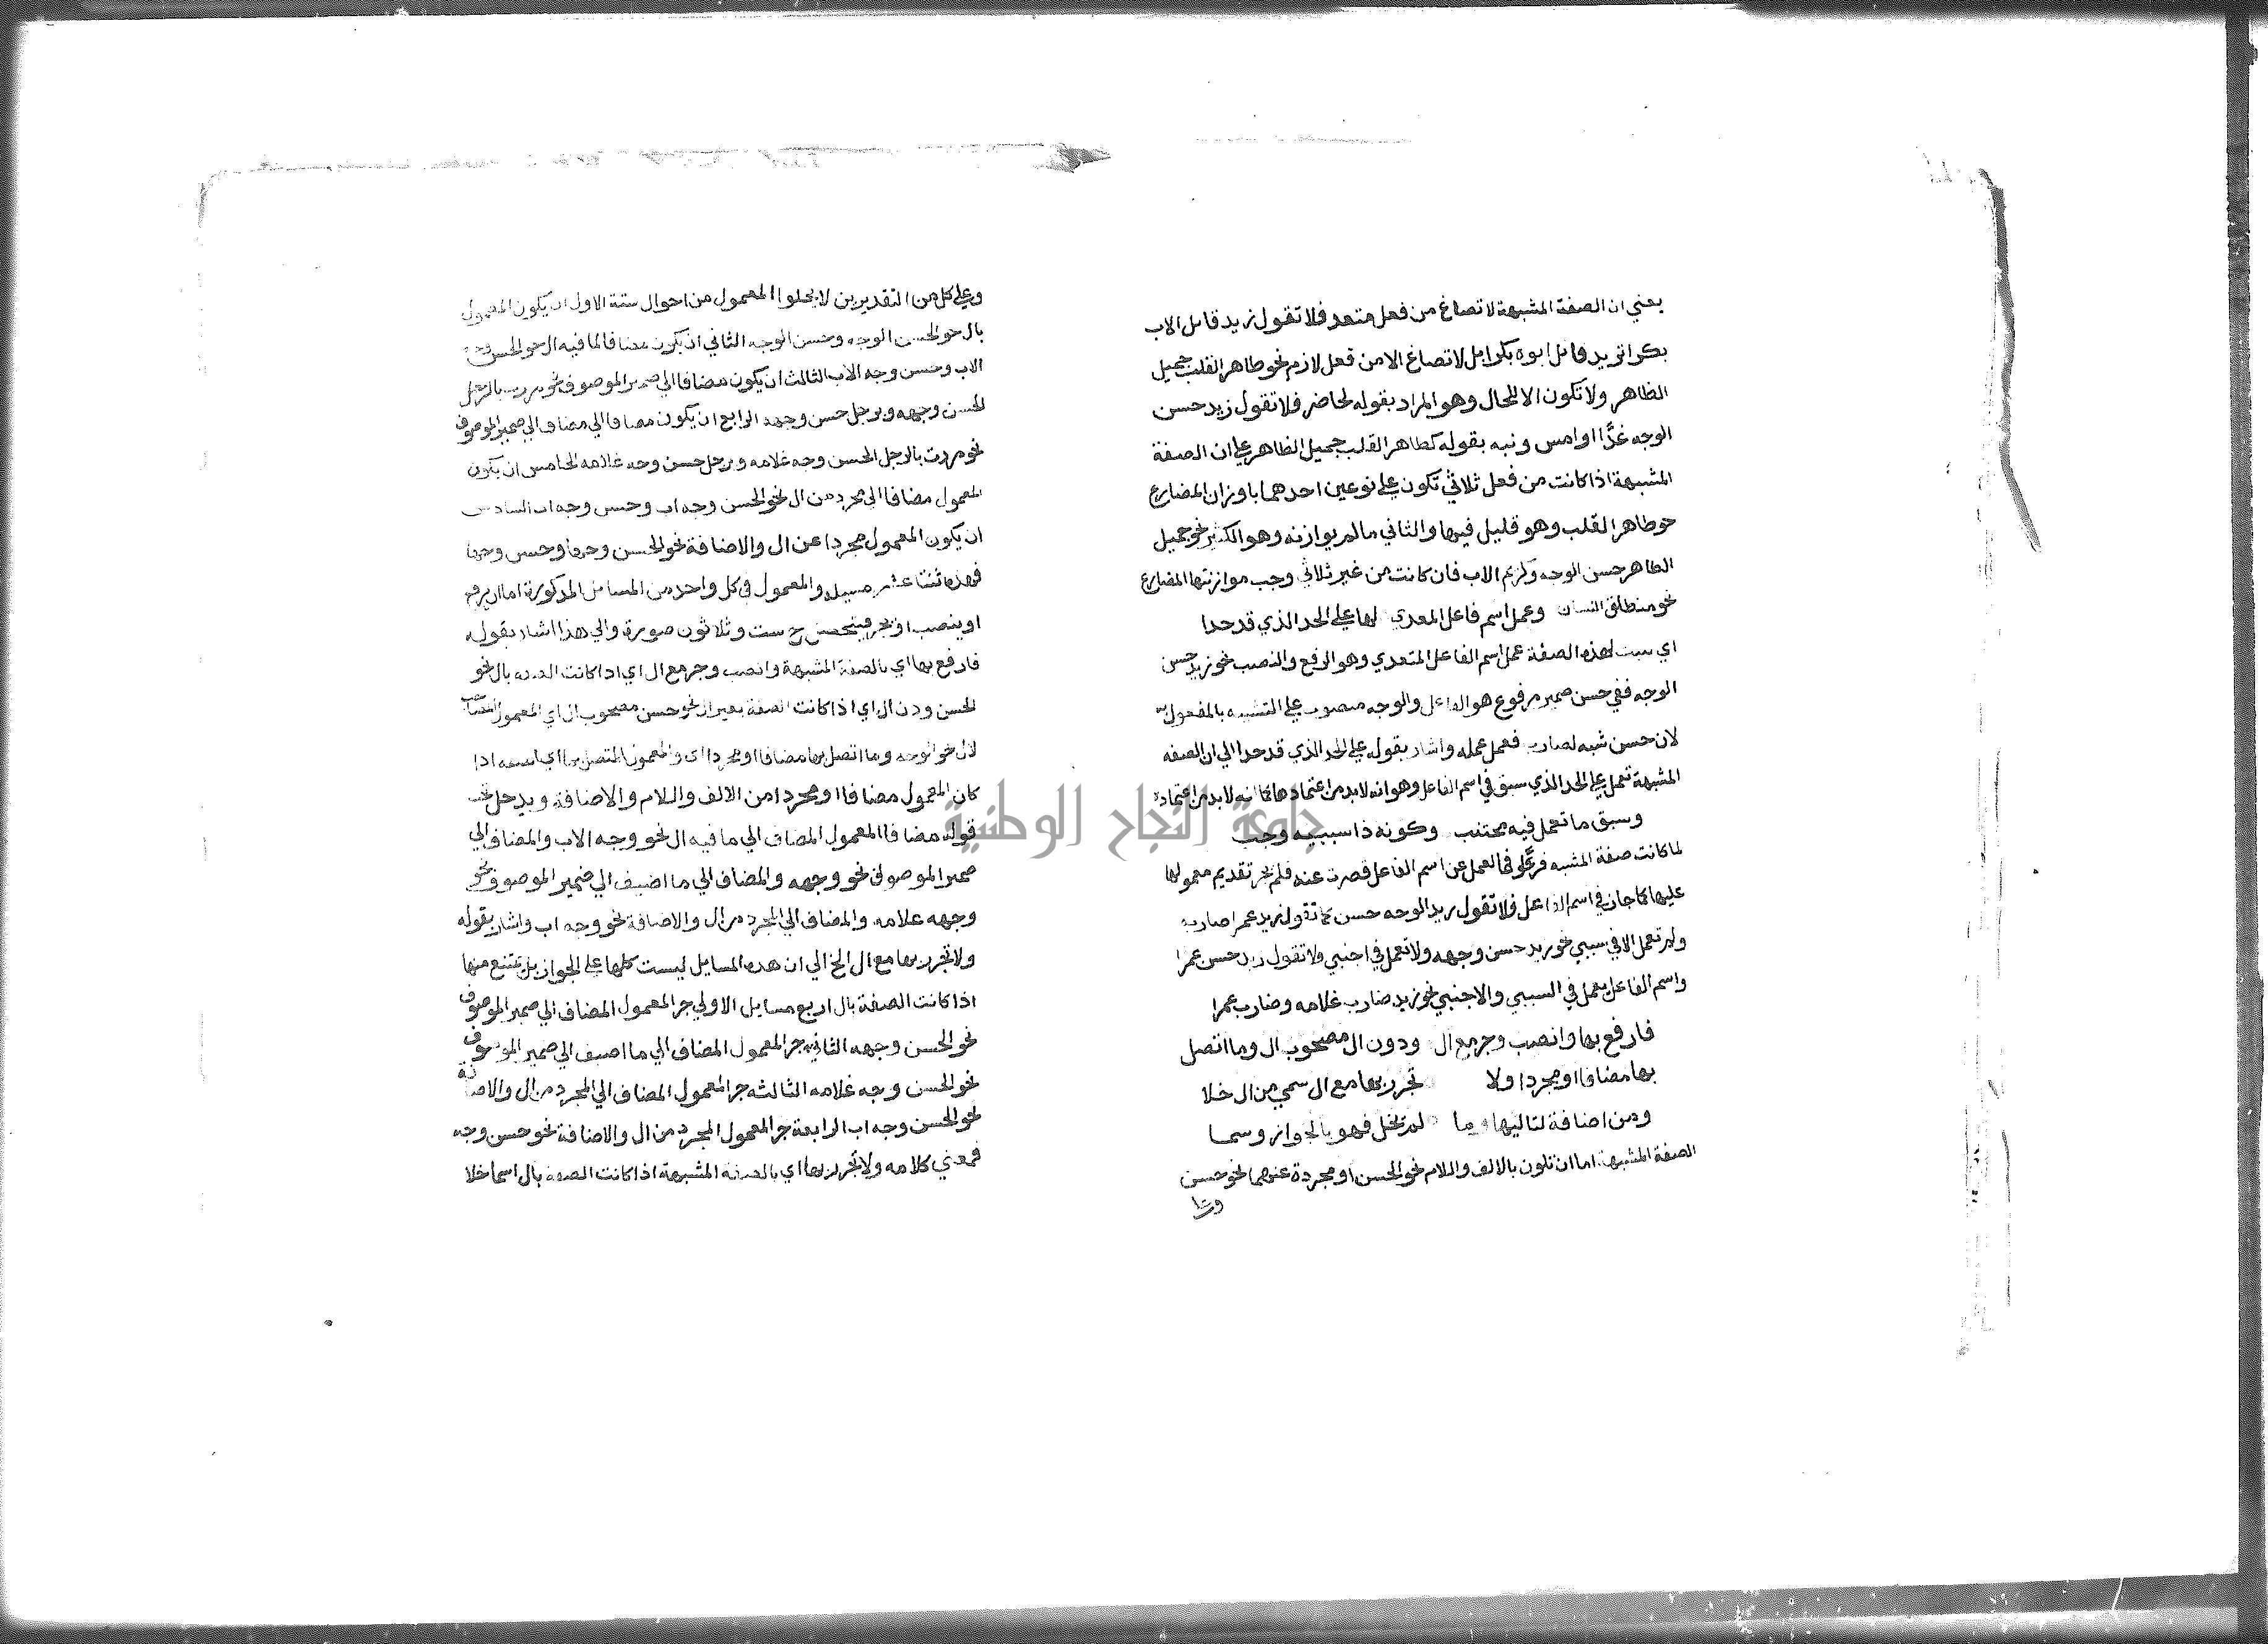 يعني ان الصفة المشبهة لا تصاغ من فعل متعد فلا تقول زيد قاتل الاب
بكرا تريد قاتل ابوه بكرا بل لا تصاغ الا من فعل لازم نحو طاهر القلب جميل
الظاهر ولا تكون الا للحال وهو المراد بقوله لحاضر فلا تقول زيد حسن
الوجه غدًا او امس ونبه بقوله كطاهر القلب جميل الظاهر علي ان الصفة
المشبهة اذا كانت من فعل ثلاثي تكون علي نوعين احدهما ما وازن المضارع
نحو طاهر القلب وهو قليل فيها والثاني ما لم يوازنه وهو الكثير نحو جميل
الظاهر حسن الوجه وكريم الاب فان كانت من غير ثلاثي وجب موازنتها المضارع
نحو منطلق اللسان وعمل اسم فاعل المعدي لها علي الحد الذي قد حدا
اي يثبت لهذه الصفة عمل اسم الفاعل المتعدي وهو الرفع والنصب نحو زيد حسن
الوجه ففي حسن ضمير مرفوع هو الفاعل والوجه منصوب علي التشبيه بالمفعول به
لان حسن شبه لضارب فعمل عمله واشار بقوله علي الحد الذي قد حدا الي ان الصفه
المشبهة تعمل علي الحد الذي سبق في اسم الفاعل وهو انه لا بد من اعتمادها كما انه لا بد من اعتماده
وسبق ما تعمل فيه مجتنب وكونه ذا سببيه وجب
لما كانت صفة المشبه فرعًا في العمل عن اسم الفاعل قصرت عنه فلم يجز تقديم معمولها
عليها كما جاز في اسم الفاعل فلا تقول زيد الوجه حسن كما تقول زيد عمرا ضارب
ولم تعمل الا في سببي نحو زيد حسن وجهه ولا تعمل في اجنبي فلا تقول زيد حسن عمرا
واسم الفاعل يعمل في السببي والاجنبي نحو زيد ضارب غلامه وضارب عمرا
فارفع بها وانصب وجر مع ال ودون ال مصحوب ال وما اتصل
بها مضافا او مجردا ولا تجرر بها مع ال سمي من ال خلا
ومن اضافة لتاليها وما لم يخل فهو بالجواز وسما
الصفة المشبهة اما ان تكون بالالف واللام نحو الحسن او مجردة عنهما نحو حسن
وعلي كل من التقديرين لا يخلوا المعمول من احوال ستة الاول ان يكون المعمول
بال نحو الحسن الوجه وحسن الوجه الثاني ان يكون مضافا لما فيه ال نحو الحسن وجه
الاب وحسن وجه الاب الثالث ان يكون مضافا الي ضمير الموصوف نحو مررت بالرجل
الحسن وجهه وبرجل حسن وجهه الرابع ان يكون مضافا الي مضاف الي ضمير الموصوف
نحو مررت بالرجل الحسن وجه غلامه وبرجل حسن وجه غلامه الخامس ان يكون
المعمول مضافا الي مجرد من ال نحو الحسن وجه اب وحسن وجه اب السادس
ان يكون المعمول مجردا عن ال والاضافة نحو الحسن وجها وحسن وجها
فهذه ثنتا عشر مسيله والمعمول في كل واحد من المسايل المذكورة اما ان يرفع
او ينصب او يجر فيتحصل ح ست وثلاثون صورة والي هذا اشار بقوله
فارفع بها اي بالصفة المشبهة وانصب وجر مع ال اي اذا كانت الصفه بال نحو
الحسن ودن ال اي اذا كانت الصفة بغير ال نحو حسن مصحوب ال اي المعمول المصاحب
لال نحو الوجه وما اتصل بها مضافا او مجردا اي والمعمول المتصل بها اي بالصفه اذا
كان المعمول مضافا او مجردا من الالف واللام والاضافة ويدخل تحت
قوله مضافا المعمول المضاف الي ما فيه ال نحو وجه الاب والمضاف الي
ضمير الموصوف نحو وجهه والمضاف الي ما اضيف الي ضمير الموصوف نحو
وجهه غلامه والمضاف الي المجرد من ال والاضافة نحو وجه اب واشار بقوله
ولا تجرر بها مع ال الخ الي ان هذه المسايل ليست كلها علي الجواز بل يمتنع منها
اذا كانت الصفة بال اربع مسايل الاولي جر المعمول المضاف الي ضمير الموصوف
نحو الحسن وجهه الثانيه جر المعمول المضاف الي ما اضيف الي ضمير الموصوف
نحو الحسن وجه غلامه الثالثه جر المعمول المضاف الي المجرد من ال والاضافة
نحو الحسن وجه اب الرابعة جر المعمول المجرد من ال والاضافة نحو حسن وجه
فمعني كلامه ولا تجرر بها اي بالصفه المشبهة اذا كانت الصفه بال اسما خلا
جامعة النجاح الوطنية